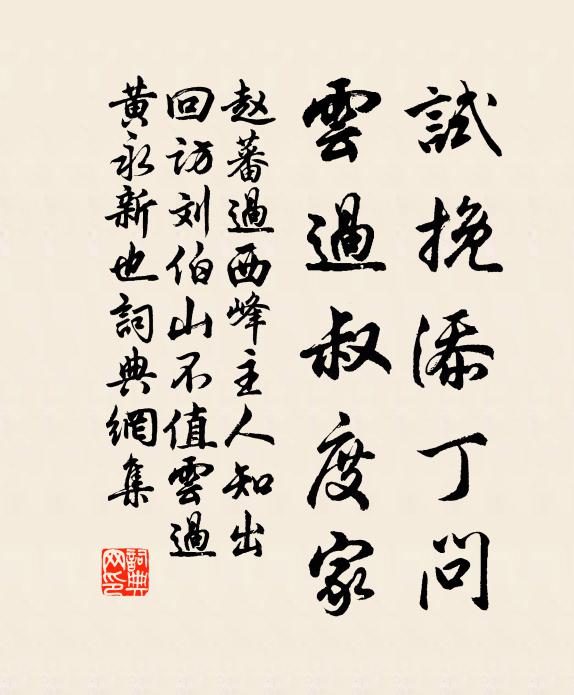 試挽添丁問
雲過叔度家
赵蕃過西峰主人知出
回访刘伯山不值雲過
黄永新也詞典網集
詞典
网印